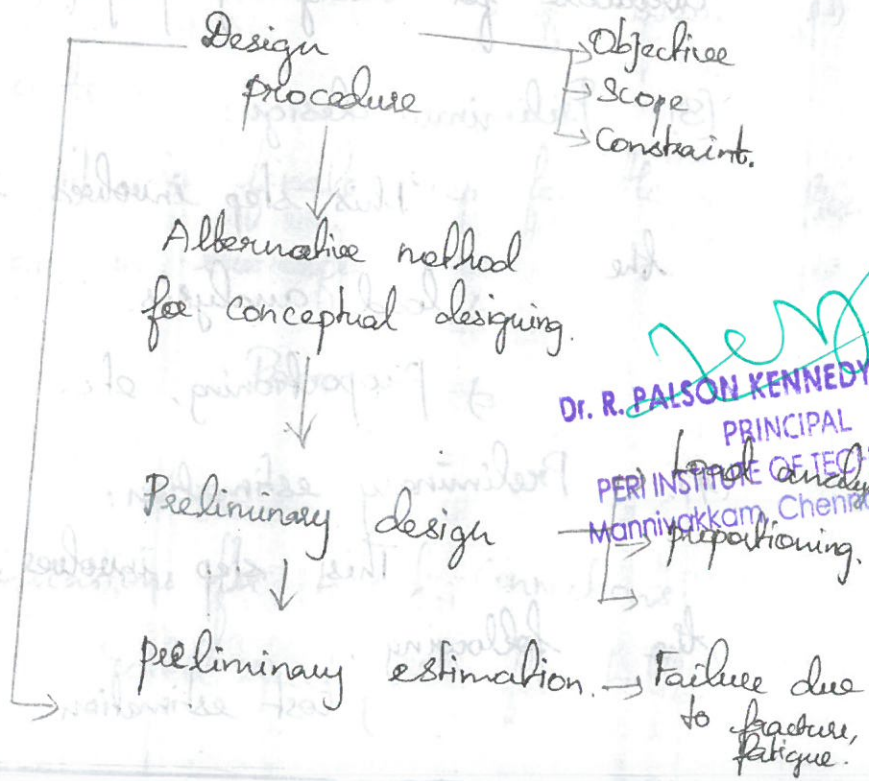 Design
procedure
Objective
Scope
Constraint.
Alternative method
for conceptual designing.
Dr. R. PALSON KENNEDY
PRINCIPAL
PERI INSTITUTE OF TECH
Mannivakkam, Chenn
Preliminary design
Load analy
propotioning.
preliminary estimation.
Failure due
to fracture,
fatigue.